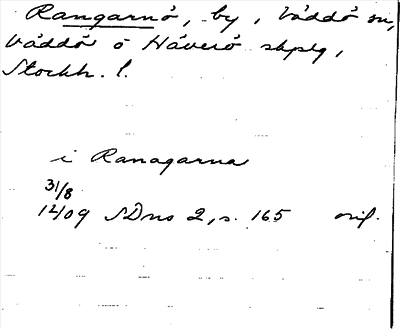 Rangarnö, by, Väddö sn,
Väddö o Häverö skplg,
Stockh. l.
i Ranagarna
31/8
1409 SDns 2, s. 165 orig.